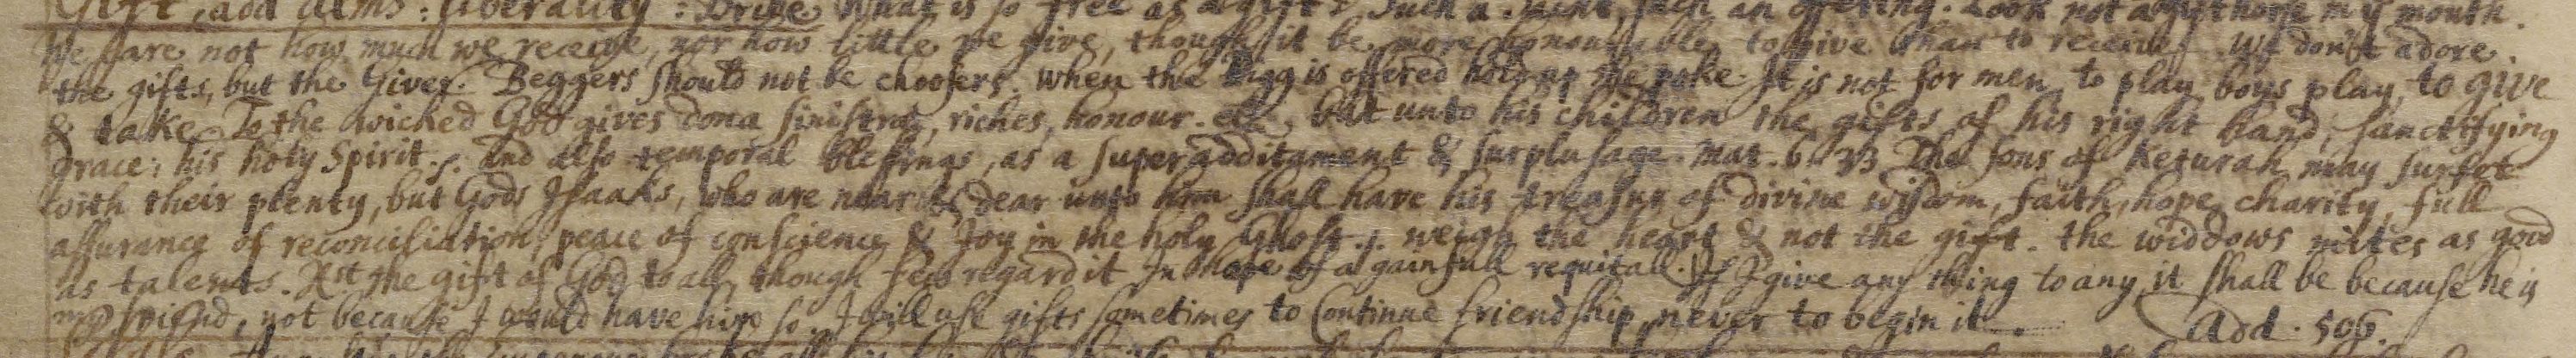 Gift, add Alms: liberality: Bribe. What is so free as a gift? Such a saint, such an offering. Look not a gift horse in ye mouth.
We care not how much we receive, nor how little we give, though it be more honourable to give than to receive. We don't adore
the gifts, but the Giver. Beggers should not be choosers. When the Pigg is offered hold up the poke. It is not for men to play boys play, to give
& take. To the wicked God gives dona sinistrae, riches, honour. etc, but unto his children the gifts of his right hand, sanctifying
grace, his holy Spirit. And also temporal blessings, as a superadditament & surplusage. Mat. 6. 33 The sons of Keturah may surfet
with their plenty, but Gods Isaaks, who are near & dear unto him shall have his treasure of divine wisdom, faith, hope, charity, full
assurance of reconciliation, peace of conscience & Joy in the holy Ghost. weigh the heart & not the gift. the widdows mites as good
as talents. the gift of God to all, though few regard it In hope of a gainfull requitall. If I give any thing to any it shall be because he is
my friend, not because I would have him so. I will use gifts sometimes to Continue friendship, never to begin it. Add. 506.